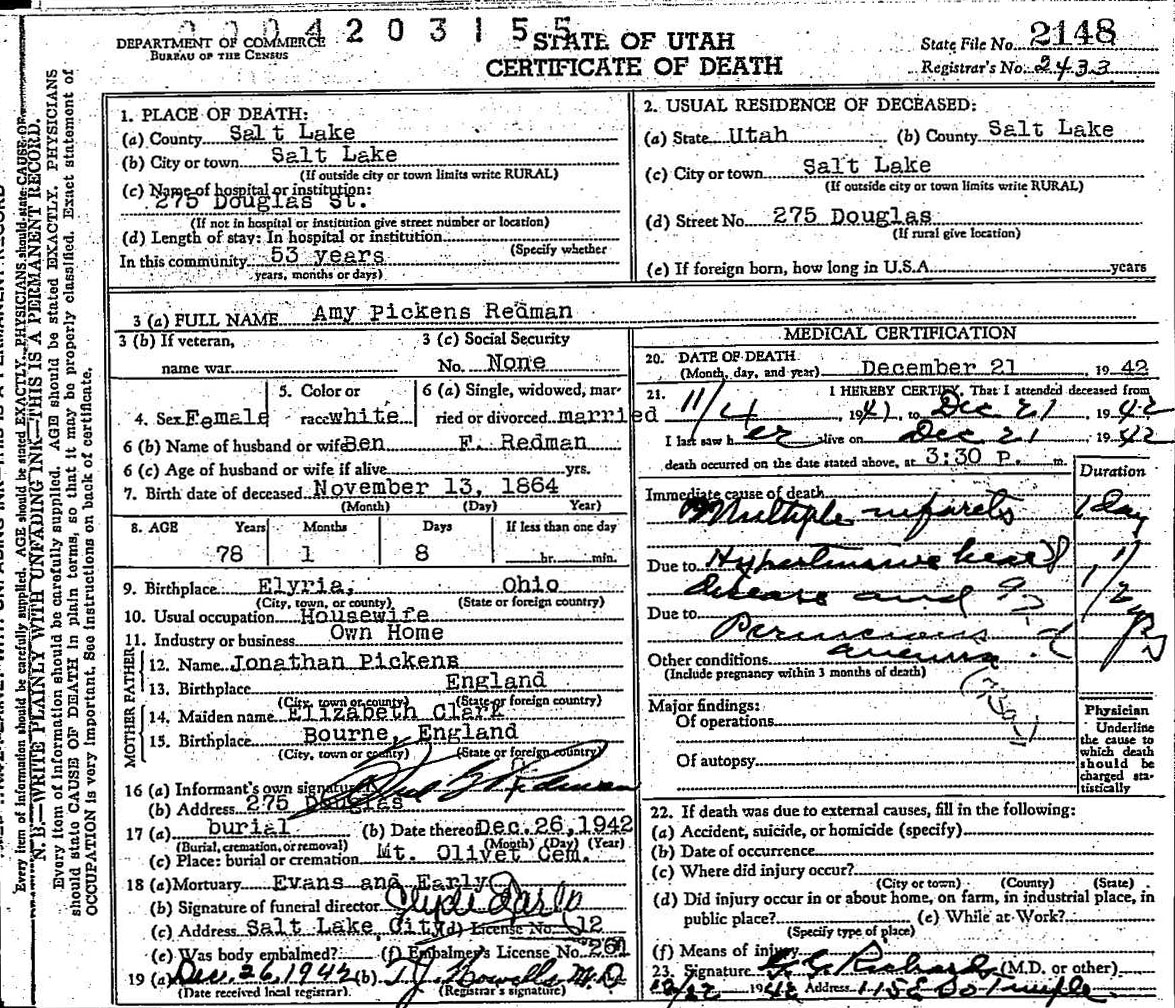 0004203155
DEPARTMENT OF COMMERCE
BUREAU OF THE CENSUS
STATE OF UTAH
CERTIFICATE OF DEATH
State File No. 2148
Registrar's No. 2433
N. B.—WRITE PLAINLY WITH UNFADING INK—THIS IS A PERMANENT RECORD.
Every item of information should be carefully supplied. AGE should be stated EXACTLY. PHYSICIANS
should state CAUSE OF DEATH in plain terms, so that it may be properly classified. Exact statement of
OCCUPATION is very important. See instructions on back of certificate.
1. PLACE OF DEATH:
(a) County Salt Lake
(b) City or town Salt Lake
(If outside city or town limits write RURAL)
(c) Name of hospital or institution:
275 Douglas St.
(If not in hospital or institution give street number or location)
(d) Length of stay: In hospital or institution
(Specify whether
In this community 53 years
years, months or days)
2. USUAL RESIDENCE OF DECEASED:
(a) State Utah (b) County Salt Lake
(c) City or town Salt Lake
(If outside city or town limits write RURAL)
(d) Street No. 275 Douglas
(If rural give location)
(e) If foreign born, how long in U.S.A. years
3 (a) FULL NAME Amy Pickens Redman
3 (b) If veteran, 3 (c) Social Security
name war No. None
4. Sex Female 5. Color or race white 6 (a) Single, widowed, married or divorced married
6 (b) Name of husband or wife Ben F. Redman
6 (c) Age of husband or wife if alive yrs.
7. Birth date of deceased November 13, 1864
(Month) (Day) Year)
8. AGE Years Months Days If less than one day
78 1 8 hr. min.
9. Birthplace Elyria, Ohio
(City, town, or county) (State or foreign country)
10. Usual occupation Housewife
11. Industry or business Own Home
FATHER
12. Name Jonathan Pickens
13. Birthplace England
(City, town or county) (State or foreign country)
MOTHER
14. Maiden name Elizabeth Clark
15. Birthplace Bourne, England
(City, town or county) (State or foreign country)
16 (a) Informant's own signature Redman
(b) Address 275 Douglas
17 (a) burial (b) Date thereof Dec. 26, 1942
(Burial, cremation, or removal) (Month) (Day) (Year)
(c) Place: burial or cremation Mt. Olivet Cem.
18 (a) Mortuary Evans and Early
(b) Signature of funeral director Clyde Early
(c) Address Salt Lake City (d) License No. 12
(e) Was body embalmed? (f) Embalmer's License No. 261
19 (a) Dec. 26, 1942 (b) T.J. Howells M.D
(Date received local registrar) (Registrar's signature)
MEDICAL CERTIFICATION
20. DATE OF DEATH
(Month, day, and year) December 21, 1942
21. I HEREBY CERTIFY, That I attended deceased from
11/4, 1941, to Dec 21, 1942
I last saw her alive on Dec 21, 1942
death occurred on the date stated above, at 3:30 P. m.
Duration
Immediate cause of death
Multiple infarcts 1 day
Due to Hypertensive heart
disease and
Due to Pernicious
anemia
Other conditions
(Include pregnancy within 3 months of death)
Major findings:
Of operations
Of autopsy
Physician
Underline
the cause to
which death
should be
charged sta-
tistically
22. If death was due to external causes, fill in the following:
(a) Accident, suicide, or homicide (specify)
(b) Date of occurrence
(c) Where did injury occur?
(City or town) (County) (State)
(d) Did injury occur in or about home, on farm, in industrial place, in
public place? (e) While at Work?
(Specify type of place)
(f) Means of injury
23. Signature G. G. Richards (M.D. or other)
12/22 1942 Address 115 E So Temple